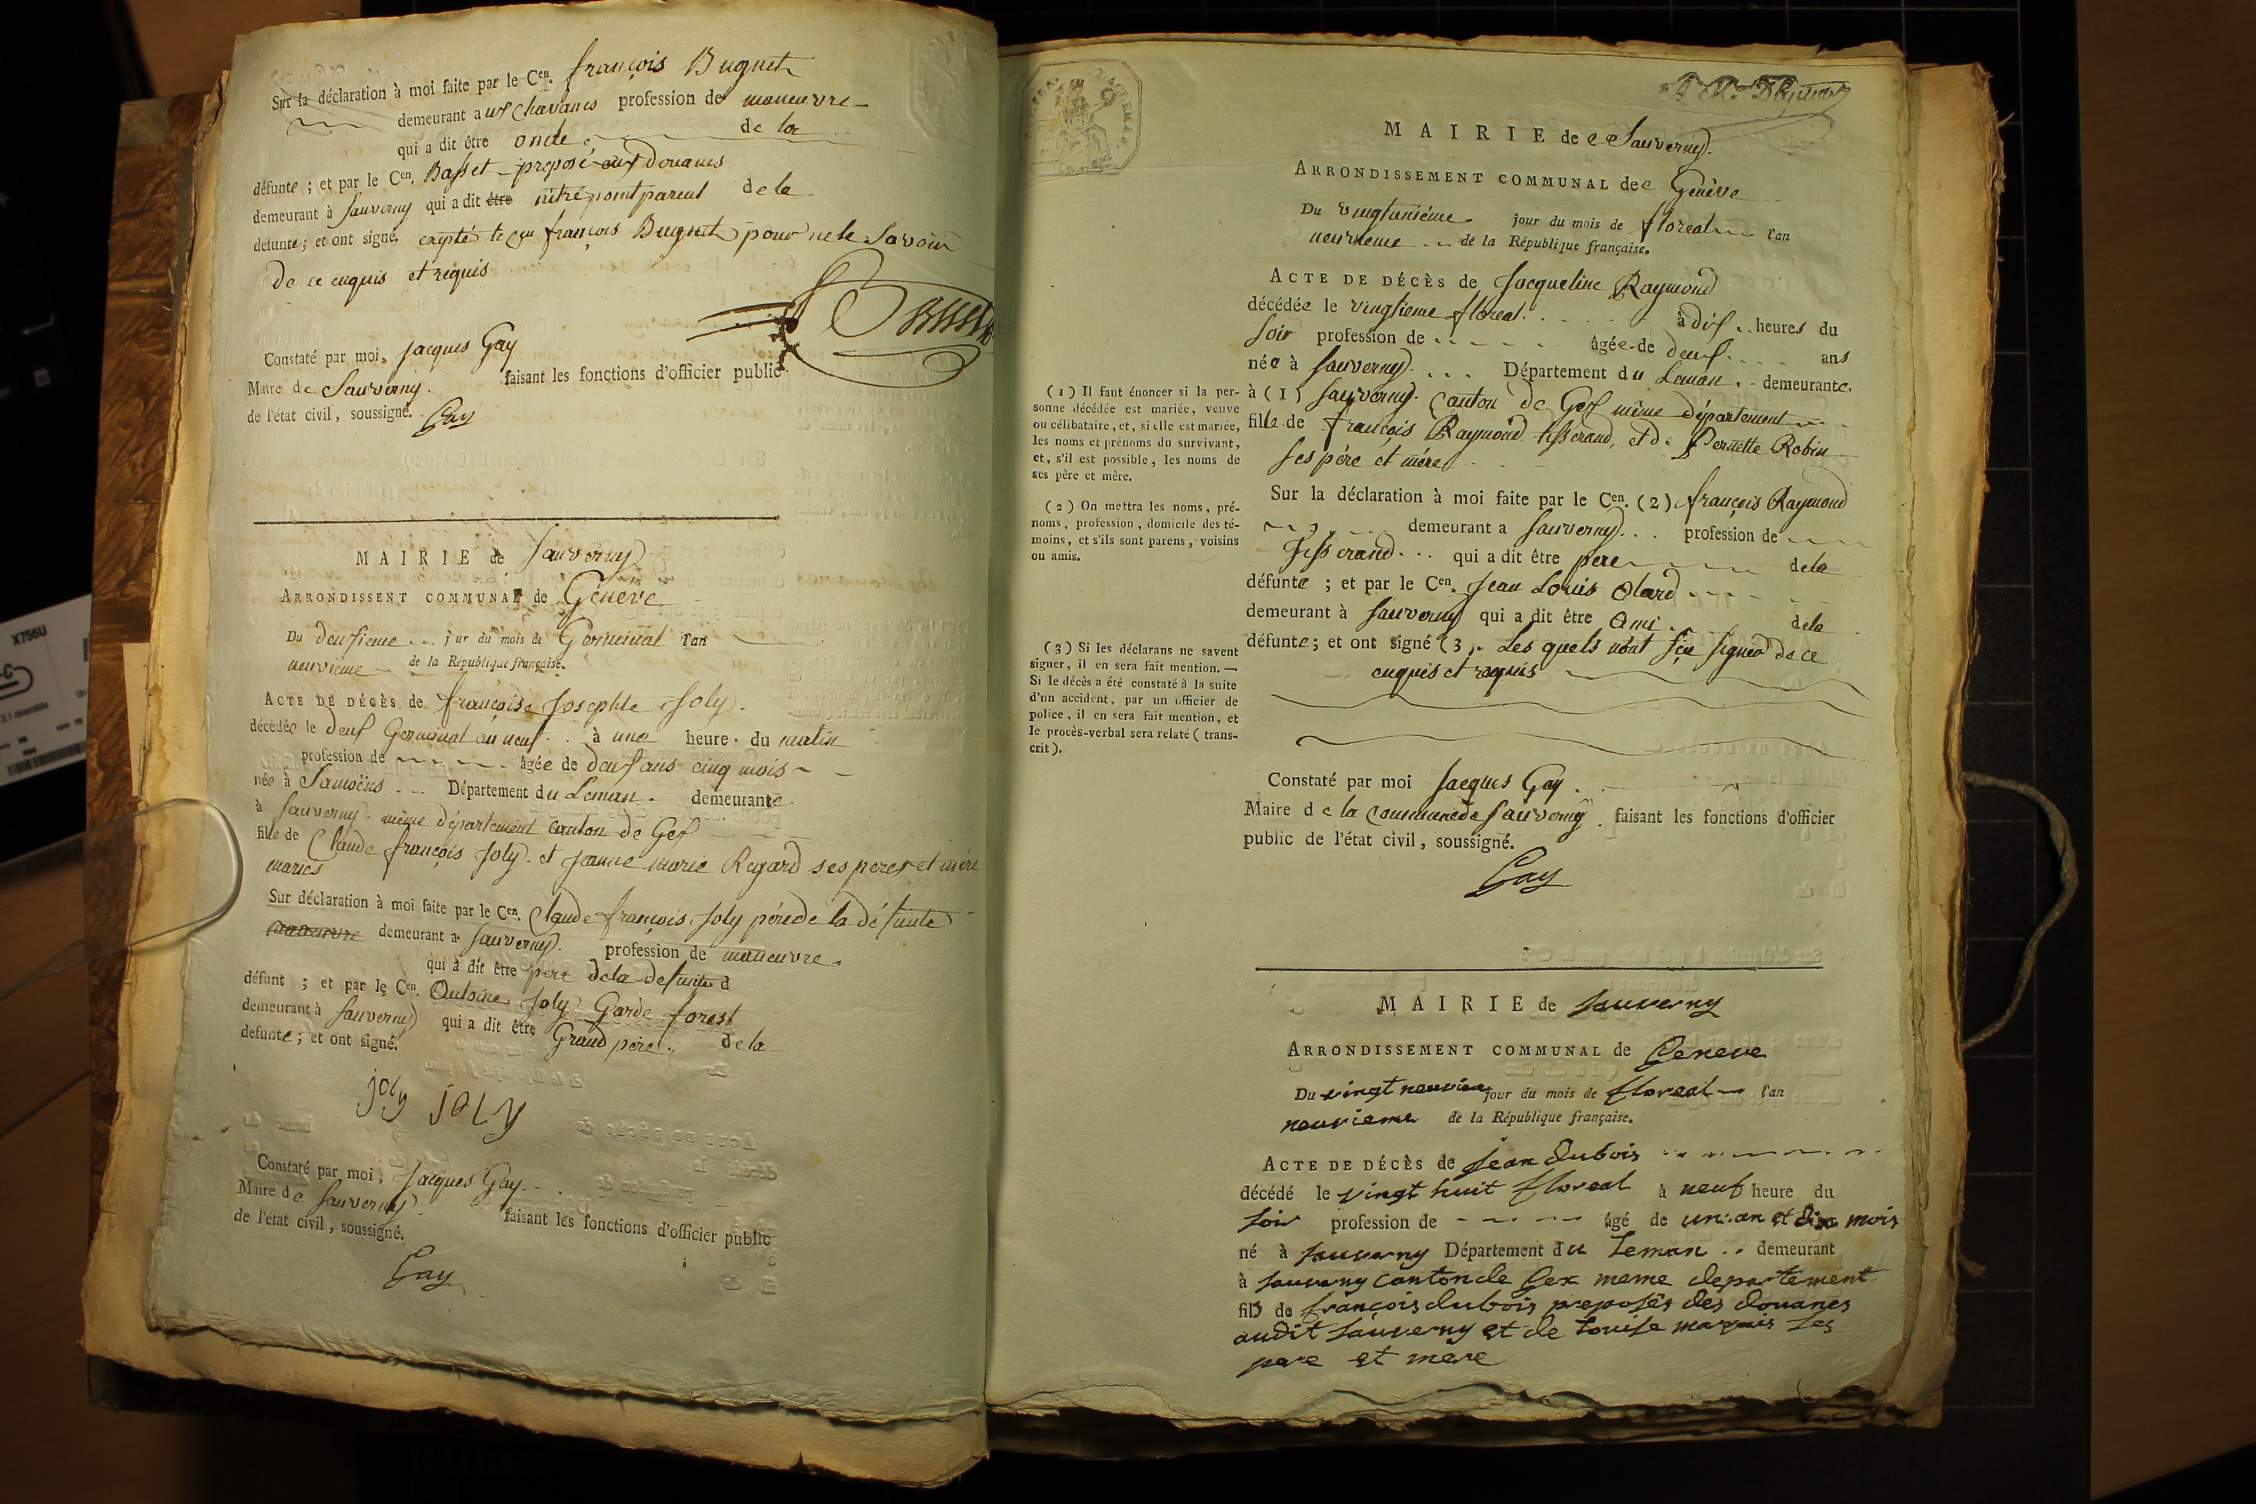 Sur la déclaration à moi faite par le Cen. françois Buguet
demeurant aux Chavanes profession de maneuvre
qui a dit être oncle de la
défunte ; et par le Cen. Basset preposé aux Douanes
demeurant à Sauverny qui a dit être nêtre point parent de la
défunte ; et ont signé. excepté le Cen françois Buguet pour ne le Savoir
de ce enquis et requis
Constaté par moi, Jacques Gay
Maire de Sauverny. faisant les fonctions d'officier public
de l'état civil, soussigné. Gay
MAIRIE de Sauverny
ARRONDISSENT COMMUNAL de Genève
Du deuxieme jur du mois de Germinal l'an
neuvième de la République française.
ACTE DE DÉCÈS de françoise Josephte Joly.
décédée le deux Germinal an neuf à une heure du matin
profession de âgée de deux ans cinq mois
née à Samoëns Département du Leman. demeurante
à Sauverny même département canton de Gex
fille de Claude françois Joly et Jeanne marie Regard ses peres et mère
maries
Sur déclaration à moi faite par le Cen. Claude françois Joly père de la défunte
maneuvre demeurant a Sauverny. profession de maneuvre.
qui a dit être pere de la defunte d
défunt ; et par le Cen. Antoine Joly Garde forest
demeurant à Sauverny qui a dit être Grand père. de la
defunte ; et ont signé.
joly JOLY
Constaté par moi, Jacques Gay
Maire de Sauverny faisant les fonctions d'officier public
de l'état civil, soussigné.
Gay
MAIRIE de Sauverny.
ARRONDISSEMENT COMMUNAL de Genève
Du vingtunième jour du mois de floreal l'an
neuvieme de la République française.
ACTE DE DÉCÈS de Jacqueline Raymond
décédée le vingtieme floreal. à dix heures du
Soir profession de âgée de deux ans
née à Sauverny. Département du Leman. demeurante.
à (1) Sauverny. Canton de Gex même département
fille de françois Raymond tisserand, et de Pernette Robin
Ses père et mère
Sur la déclaration à moi faite par le Cen. (2) françois Raymond
demeurant a Sauverny profession de
Tisserand qui a dit être pere de la
défunte ; et par le Cen. Jean Louis Olard
demeurant à Sauverny qui a dit être Ami de la
défunte ; et ont signé (3). Les quels n'ont sçu signer de ce
enquis et requis
(1) Il faut énoncer si la per-
sonne décédée est mariée, veuve
ou célibataire, et, si elle est mariée,
les noms et prénoms du survivant,
et, s'il est possible, les noms de
ses père et mère.
(2) On mettra les noms, pré-
noms, profession, domicile des té-
moins, et s'ils sont parens, voisins
ou amis.
(3) Si les déclarans ne savent
signer, il en sera fait mention. —
Si le décès a été constaté à la suite
d'un accident, par un officier de
police, il en sera fait mention, et
le procès-verbal sera relaté (trans-
crit).
Constaté par moi Jacques Gay.
Maire de la Commune de Sauverny. faisant les fonctions d'officier
public de l'état civil, soussigné.
Gay
MAIRIE de Sauverny
ARRONDISSEMENT COMMUNAL de Geneve
Du vingt neuvieme jour du mois de floreal l'an
neuvieme de la République française.
ACTE DE DÉCÈS de Jean dubois
décédé le vingt huit floreal à neuf heure du
Soir profession de âgé de un an et dix mois
né à Sauverny Département du Leman demeurant
à Sauverny canton de Gex meme departement
fils de françois dubois preposés des douanes
audit Sauverny et de Louise marquis Ses
pere et mere
X756U